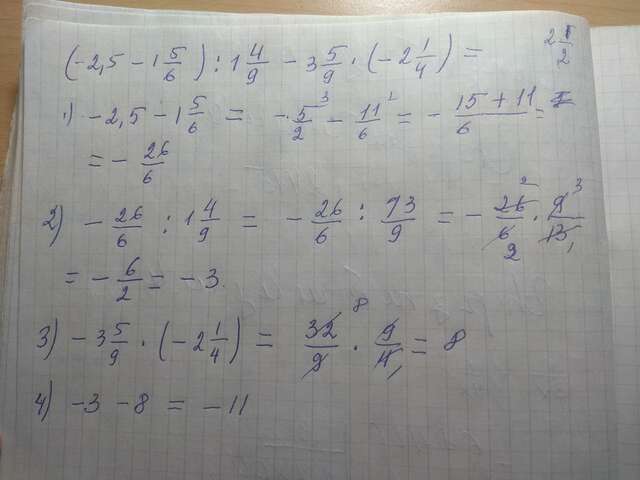 (-2,5 - 1 5/6) : 1 4/9 - 3 5/9 · (-2 1/4) =
2 1/2
1) -2,5 - 1 5/6 = -5/2 ³ - 11/6 ¹ = - (15 + 11)/6 =
= - 26/6
2) - 26/6 : 1 4/9 = - 26/6 : 13/9 = - 26 ²/6 2 · 9 ³/13 1
= - 6/2 = -3
3) -3 5/9 · (-2 1/4) = 32 ⁸/9 · 9/4 1 = 8
4) -3 - 8 = -11